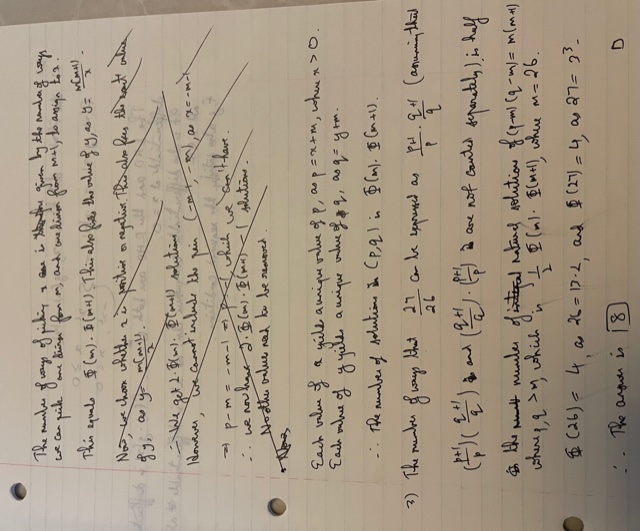 The number of ways of picking x is given by the number of ways
we can pick one divisor from m, and one divisor from m+1, to assign to x.
This equals Φ(m). Φ(m+1). This also fixes the value of y, as y = m(m+1)/x.
Now, we choose whether x is positive or negative. This also fixes the value
of y, as y = m(m+1)/x.
∴ We get 2 Φ(m). Φ(m+1) solutions.
However, we cannot include the pair (-m-1, -m), as x = -m-1
⇒ p-m = -m-1 ⇒ p = -1, which we can't have.
∴ we now have 2. Φ(m). Φ(m+1) -1 solutions.
No other values need to be removed.
Each value of x yields a unique value of p, as p = x+m, where x > 0.
Each value of y yields a unique value of q, as q = y+m.
∴ The number of solutions in (p,q) is Φ(m). Φ(m+1).
3) The number of ways that 27/26 can be expressed as p+1/p . q+1/q (assuming that
(p+1/p)(q+1/q) and (q+1/q).(p+1/p) are not counted separately), is half
the number of natural solutions of (p-m)(q-m) = m(m+1)
where p, q > m, which is 1/2 Φ(m). Φ(m+1), where m = 26.
Φ(26) = 4, as 26 = 13.2, and Φ(27) = 4, as 27 = 3³.
∴ The answer is 8